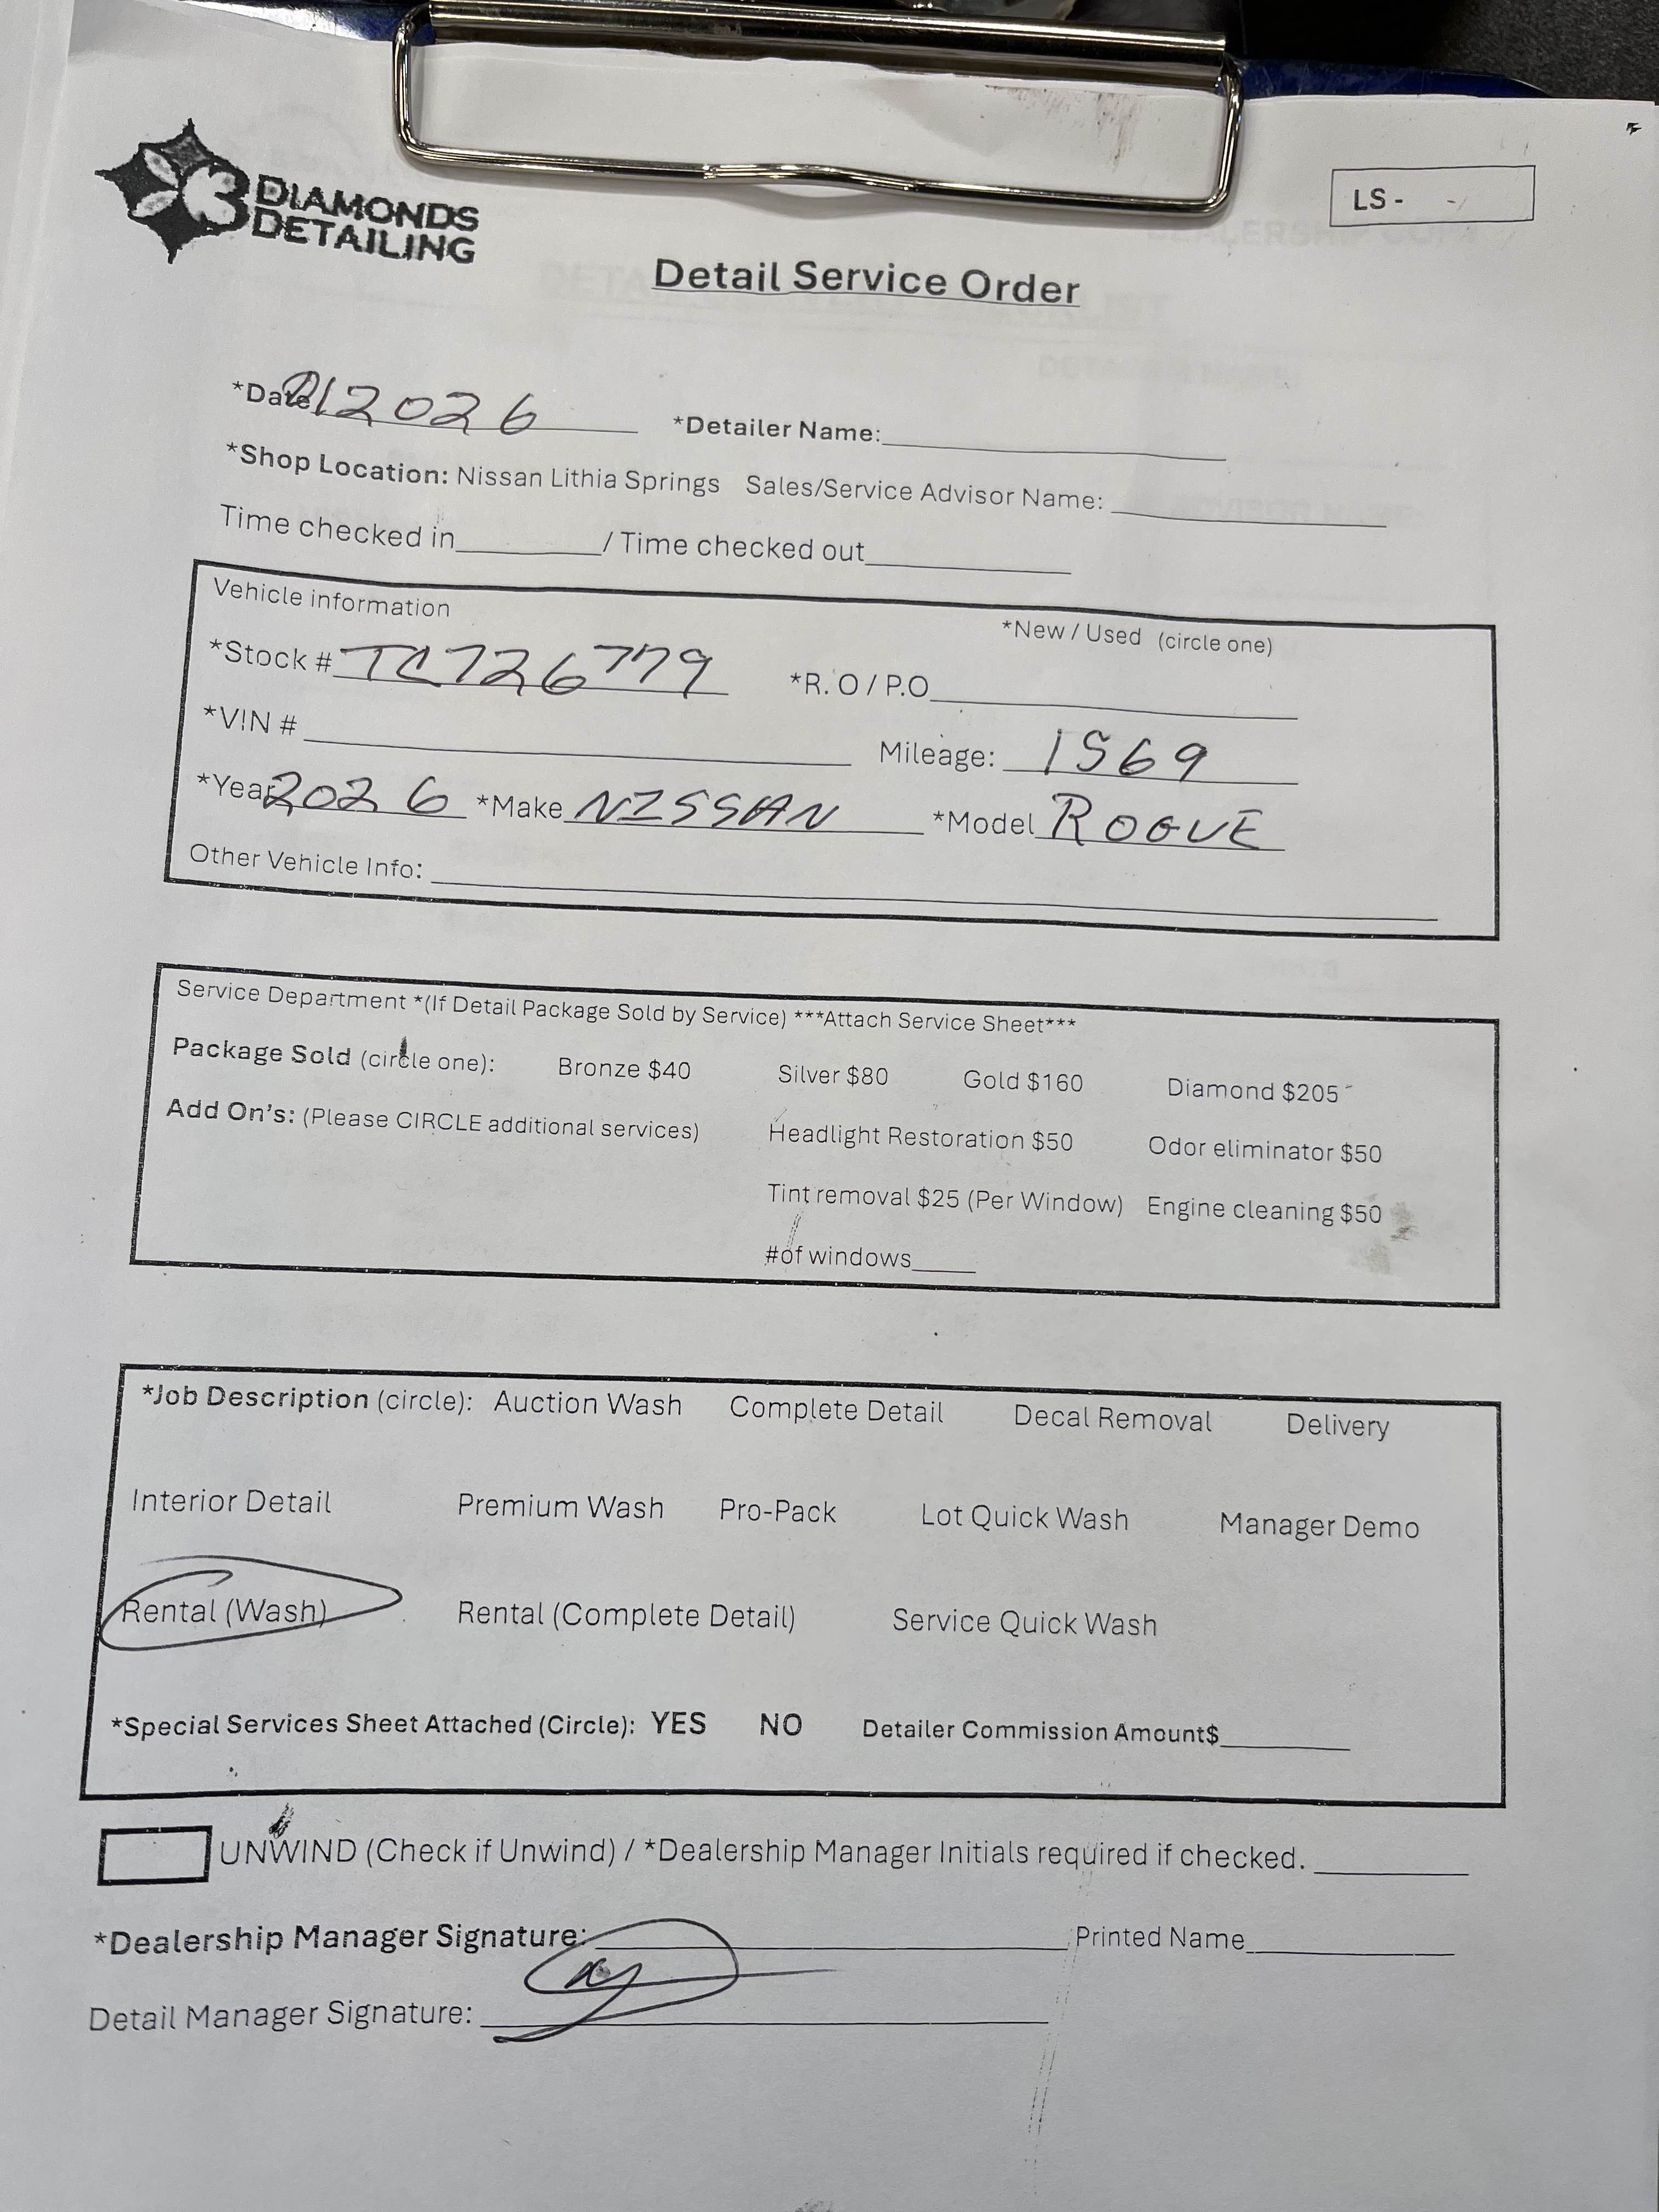 3 DIAMONDS
DETAILING
LS -
Detail Service Order
*Date 012026 *Detailer Name:
*Shop Location: Nissan Lithia Springs Sales/Service Advisor Name:
Time checked in / Time checked out
Vehicle information
*New / Used (circle one)
*Stock # TC726779 *R.O / P.O
*VIN # Mileage: 1569
*Year 2026 *Make NISSAN *Model ROGUE
Other Vehicle Info:
Service Department *(If Detail Package Sold by Service) ***Attach Service Sheet***
Package Sold (circle one): Bronze $40 Silver $80 Gold $160 Diamond $205
Add On's: (Please CIRCLE additional services) Headlight Restoration $50 Odor eliminator $50
Tint removal $25 (Per Window) Engine cleaning $50
#of windows
*Job Description (circle): Auction Wash Complete Detail Decal Removal Delivery
Interior Detail Premium Wash Pro-Pack Lot Quick Wash Manager Demo
Rental (Wash) Rental (Complete Detail) Service Quick Wash
*Special Services Sheet Attached (Circle): YES NO Detailer Commission Amount$
UNWIND (Check if Unwind) / *Dealership Manager Initials required if checked.
*Dealership Manager Signature: Printed Name
Detail Manager Signature: